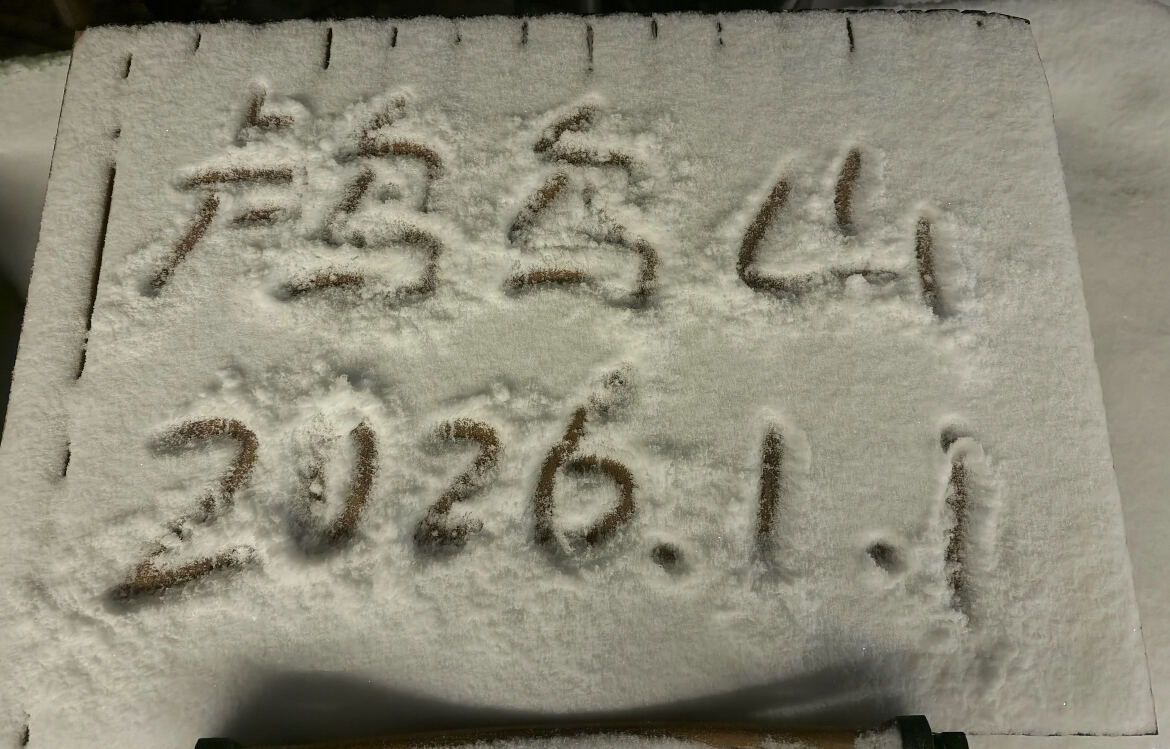 鸬鸟山
2026.1.1